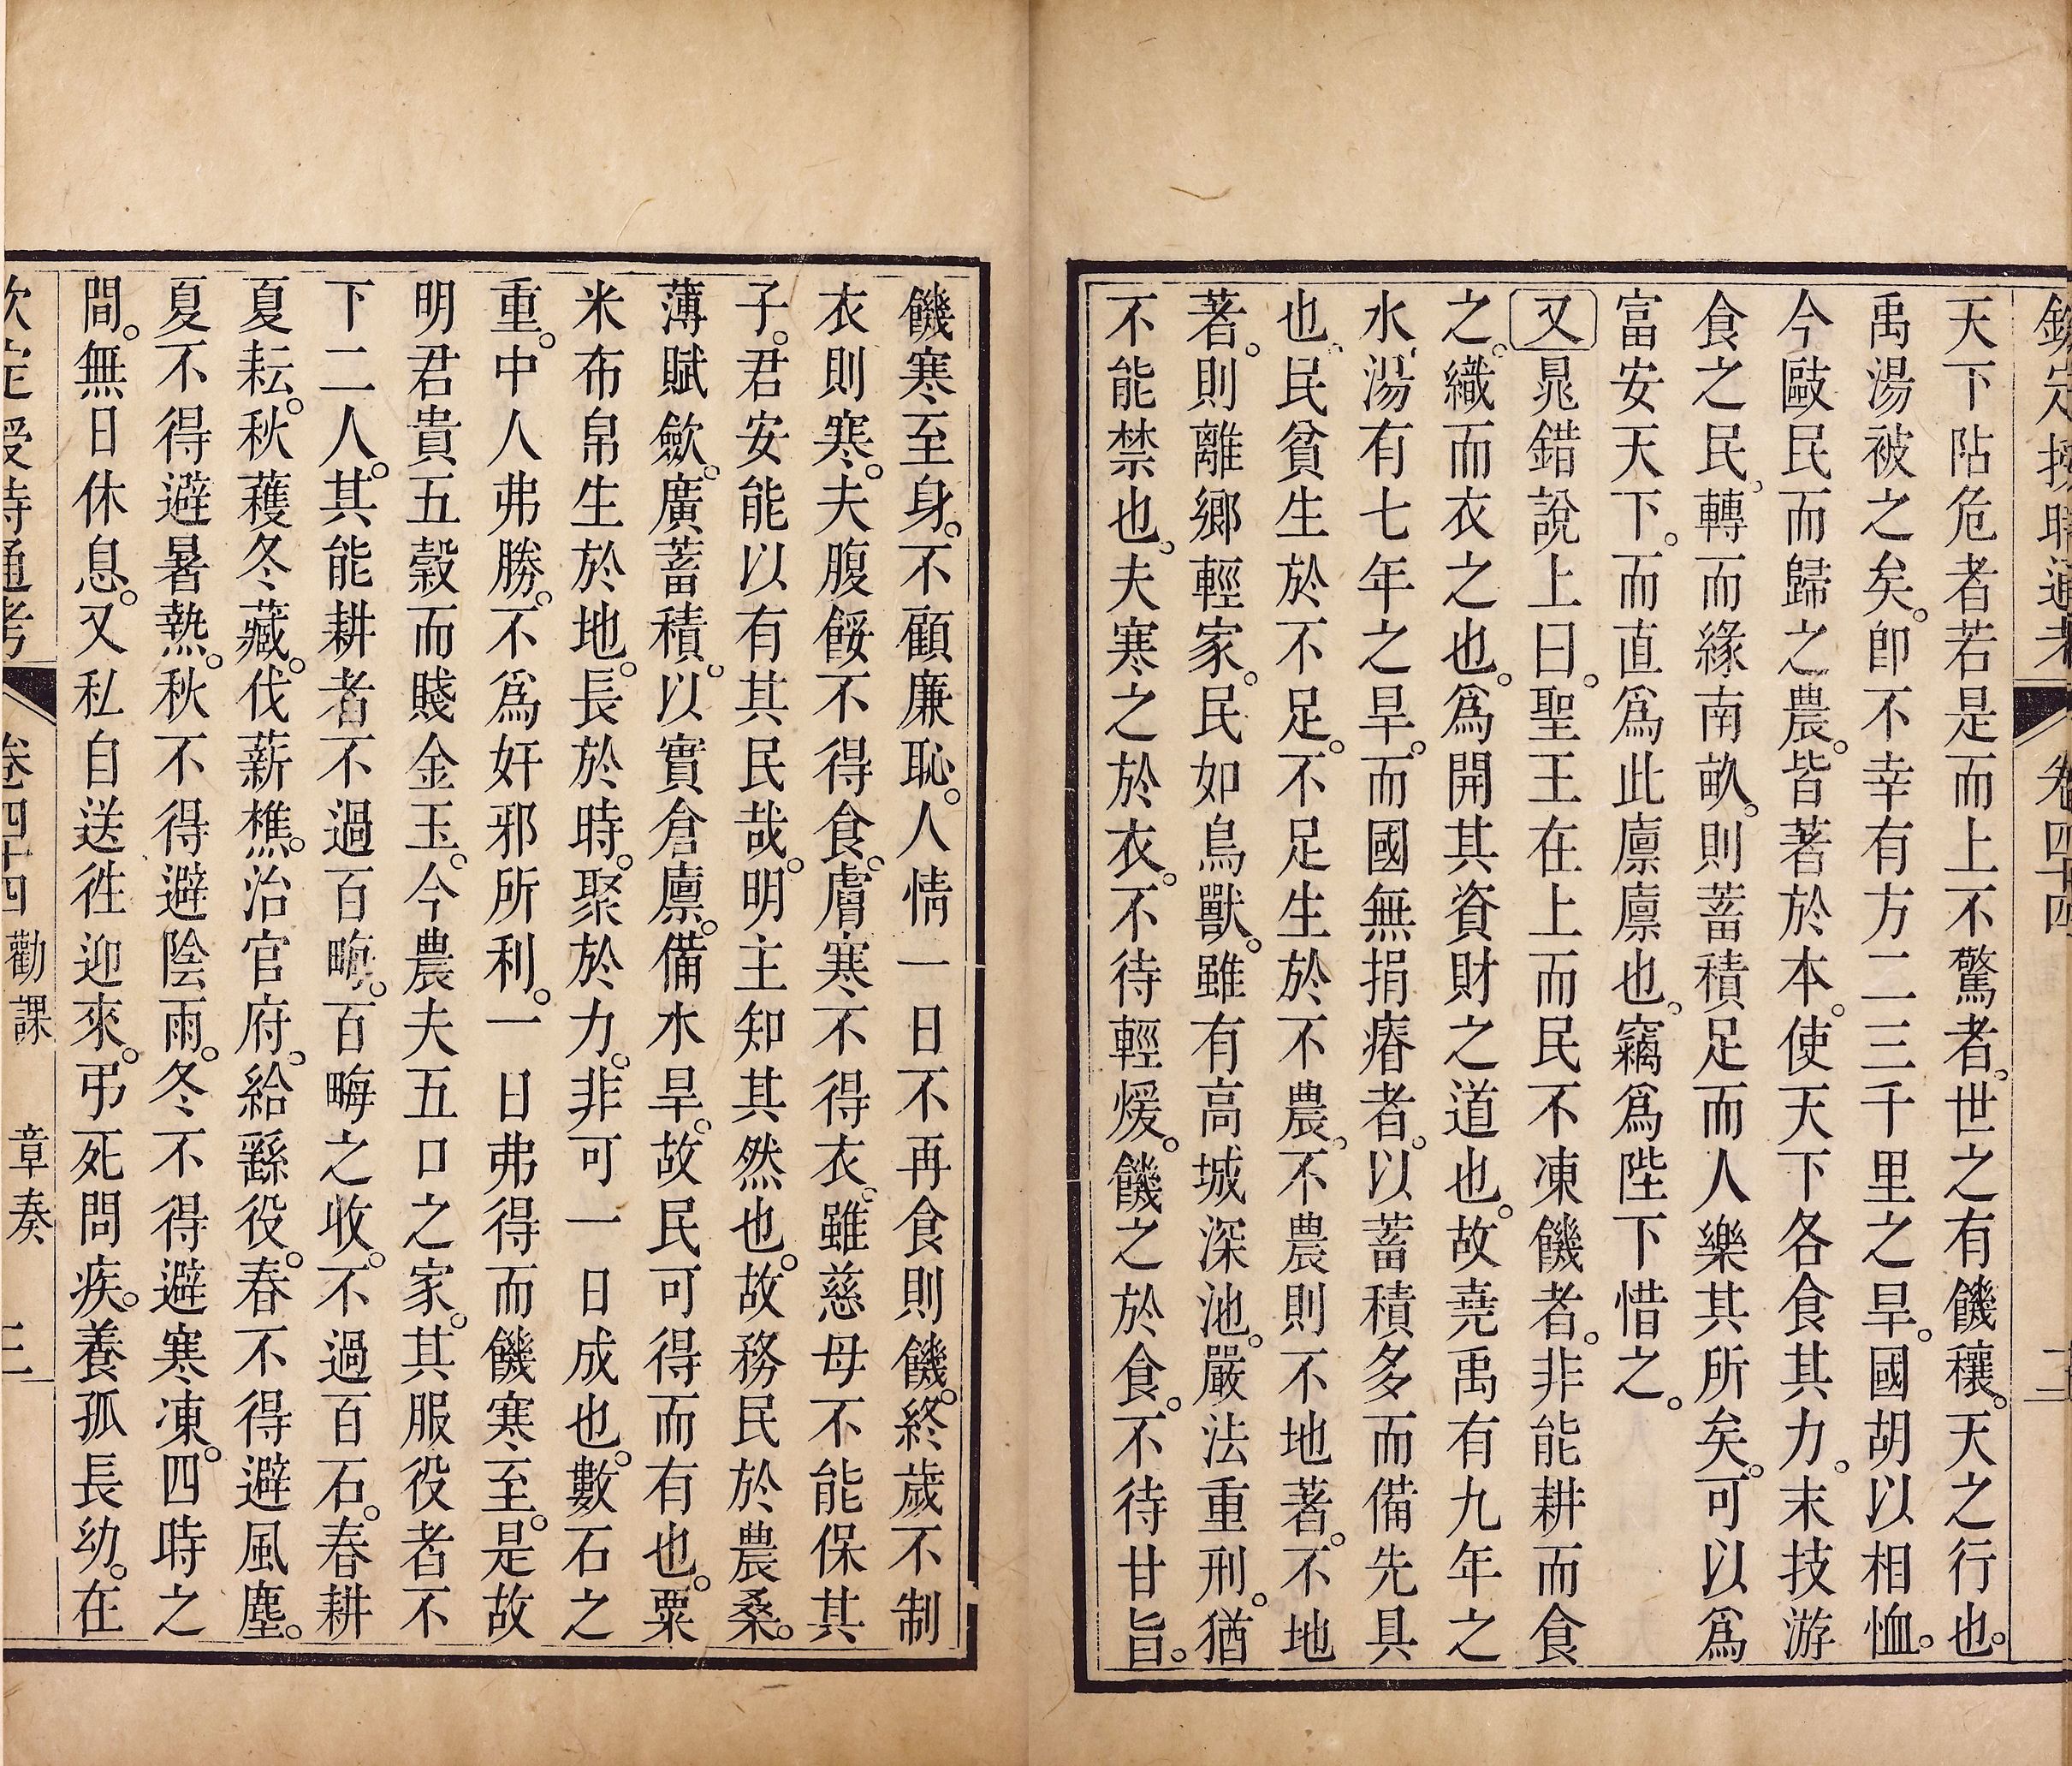 欽定授時通考 卷四十四 二
天下阽危者若是而上不驚者。世之有饑穰。天之行也。
禹湯被之矣。卽不幸有方二三千里之旱。國胡以相恤。
今敺民而歸之農。皆著於本。使天下各食其力。末技游
食之民。轉而緣南畝。則蓄積足而人樂其所矣。可以爲
富安天下。而直爲此廩廩也。竊爲陛下惜之。
又鼂錯說上曰。聖王在上而民不凍饑者。非能耕而食
之。織而衣之也。爲開其資財之道也。故堯禹有九年之
水。湯有七年之旱。而國無捐瘠者。以蓄積多而備先具
也。民貧生於不足。不足生於不農。不農則不地著。不地
著。則離鄉輕家。民如鳥獸。雖有高城深池。嚴法重刑。猶
不能禁也。夫寒之於衣。不待輕煖。饑之於食。不待甘旨。
饑寒至身。不顧廉恥。人情一日不再食則饑。終歲不制
衣則寒。夫腹餒不得食。膚寒不得衣。雖慈母不能保其
子。君安能以有其民哉。明主知其然也。故務民於農桑。
薄賦歛。廣蓄積。以實倉廩。備水旱。故民可得而有也。粟
米布帛生於地。長於時。聚於力。非可一日成也。數石之
重。中人弗勝。不爲奸邪所利。一日弗得而饑寒至。是故
明君貴五穀而賤金玉。今農夫五口之家。其服役者不
下二人。其能耕者不過百畮。百畮之收。不過百石。春耕
夏耘。秋穫冬藏。伐薪樵。治官府。給繇役。春不得避風塵。
夏不得避暑熱。秋不得避陰雨。冬不得避寒凍。四時之
間。無日休息。又私自送徃迎來。弔死問疾。養孤長幼。在
欽定授時通考 卷四十四 勸課 章奏 三